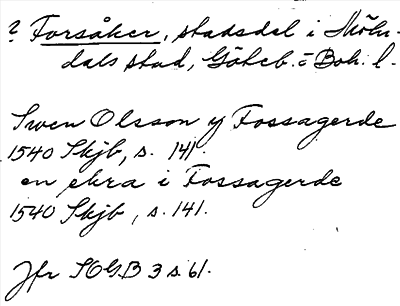 ? Forsåker, stadsdel i Möln-
dals stad, Göteb. o Boh. l.
Swen Olsson y Fossagerde
1540 Skjb, s. 141.
en ekra i Fossagerde
1540 Skjb, s. 141.
Jfr SOGB 3 s 61.